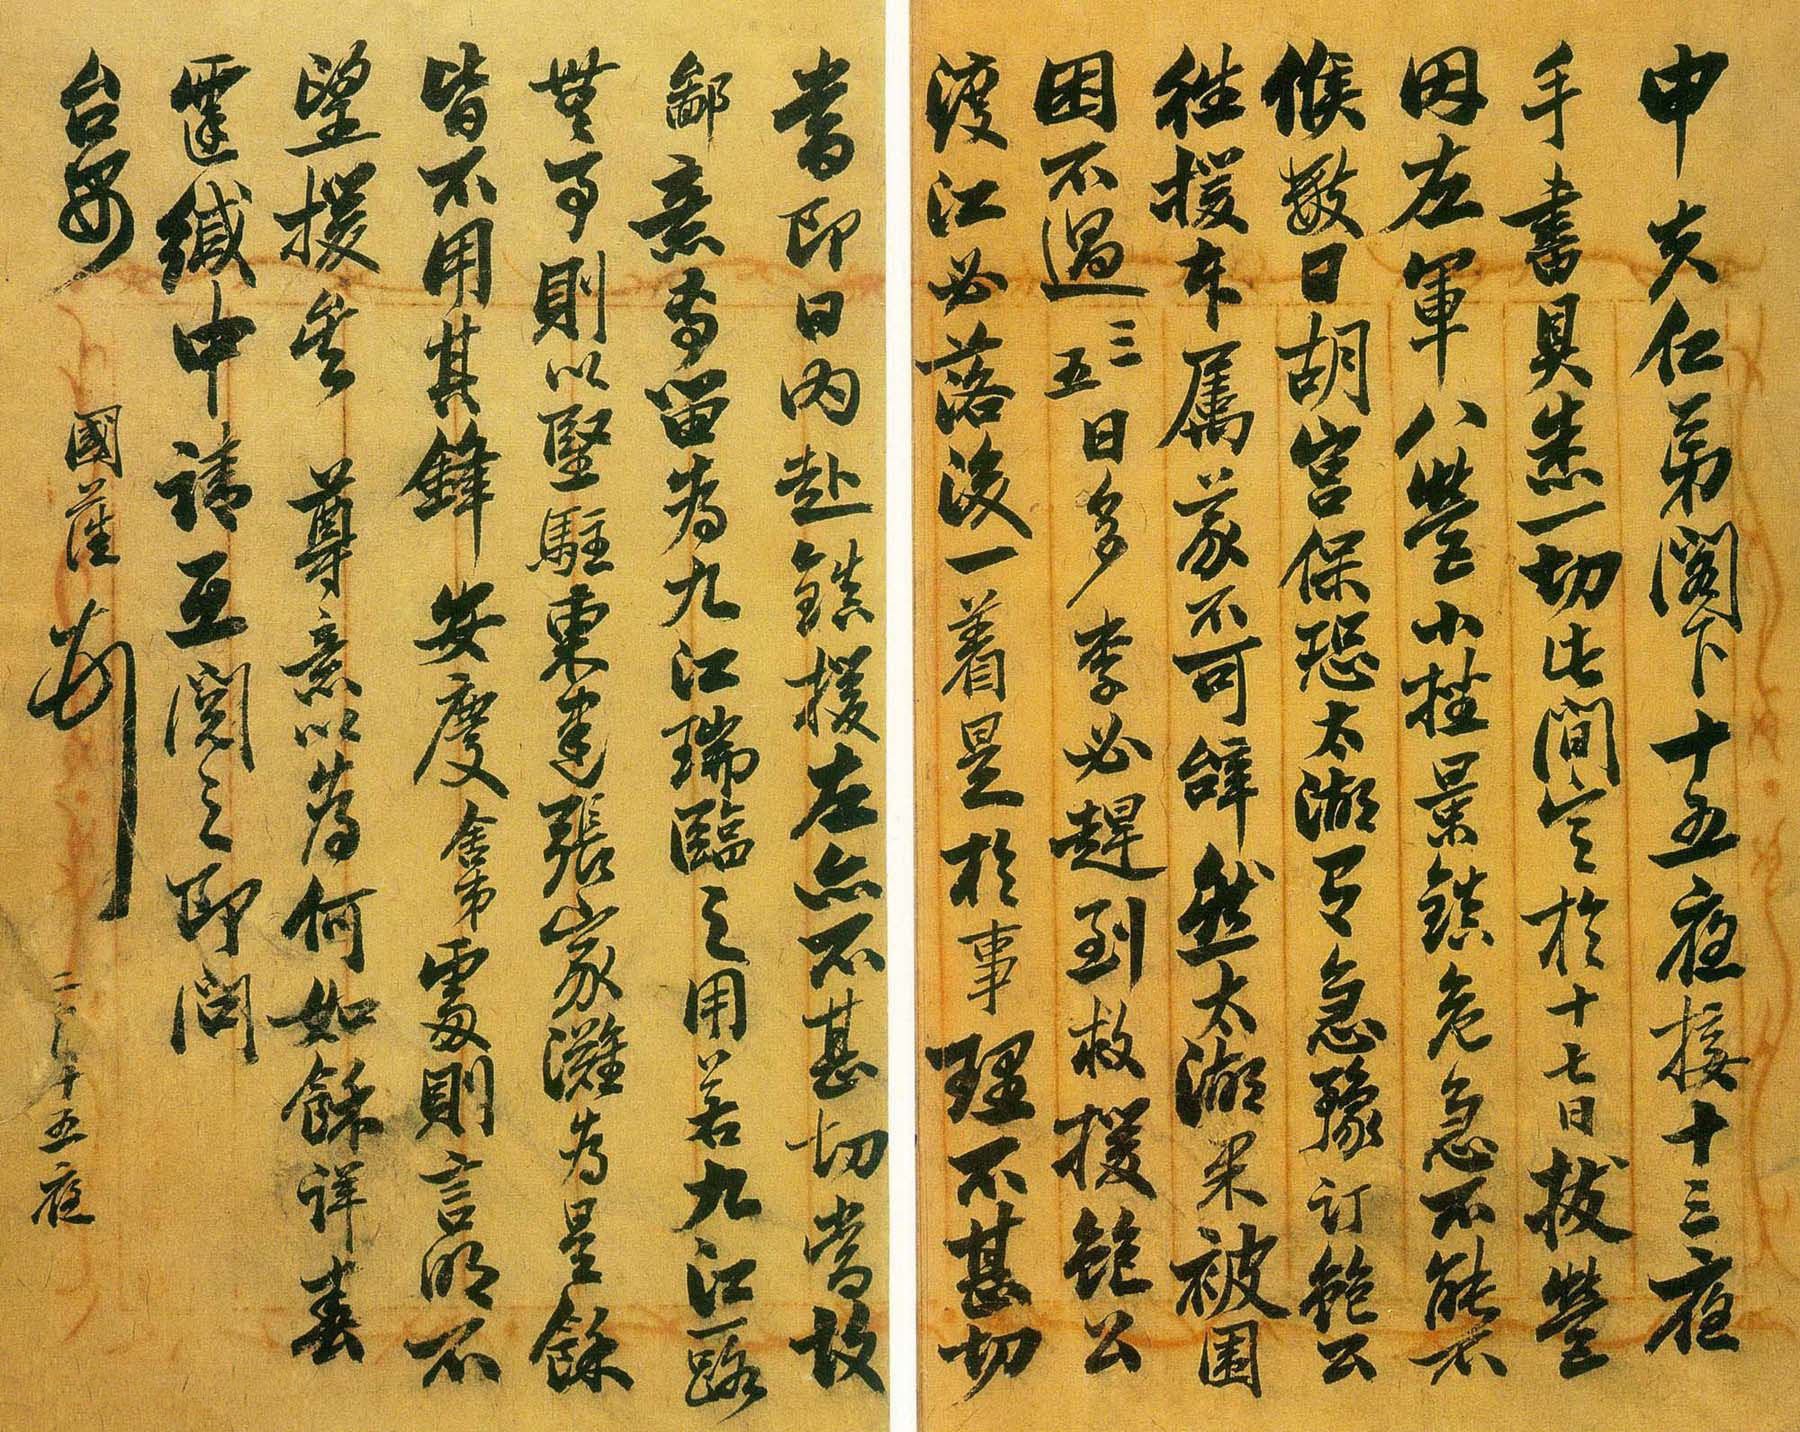 申夫仁弟閣下十五夜接十三夜
手書具悉一切此間定於十七日拔營
因左軍八營小挫景鎮危急不能不
候數日胡宮保恐太湖有急豫訂鮑公
往援本屬義不可辭然太湖果被圍
困不過三五日多李必趕到救援鮑公
渡江必落後一着是於事理不甚切
當即日內赴鎮援左亦不甚切當故
鄙意專留為九江瑞臨之用若九江一路
無事則以堅駐東建張家灘為是餘
皆不用其鋒安慶舍弟處則言明不
望援矣 尊意以為何如餘詳春
霆緘中請互閱之即問
台安
國藩 頓
二月十五夜